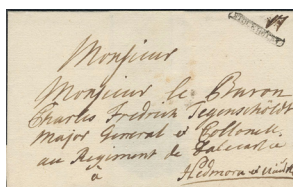 Monsieur
Monsieur le Baron
Charles Fredrich Fegenschöldt
Major General et Collonell
au Regiment de Dalecarlie
à
Hedmora et